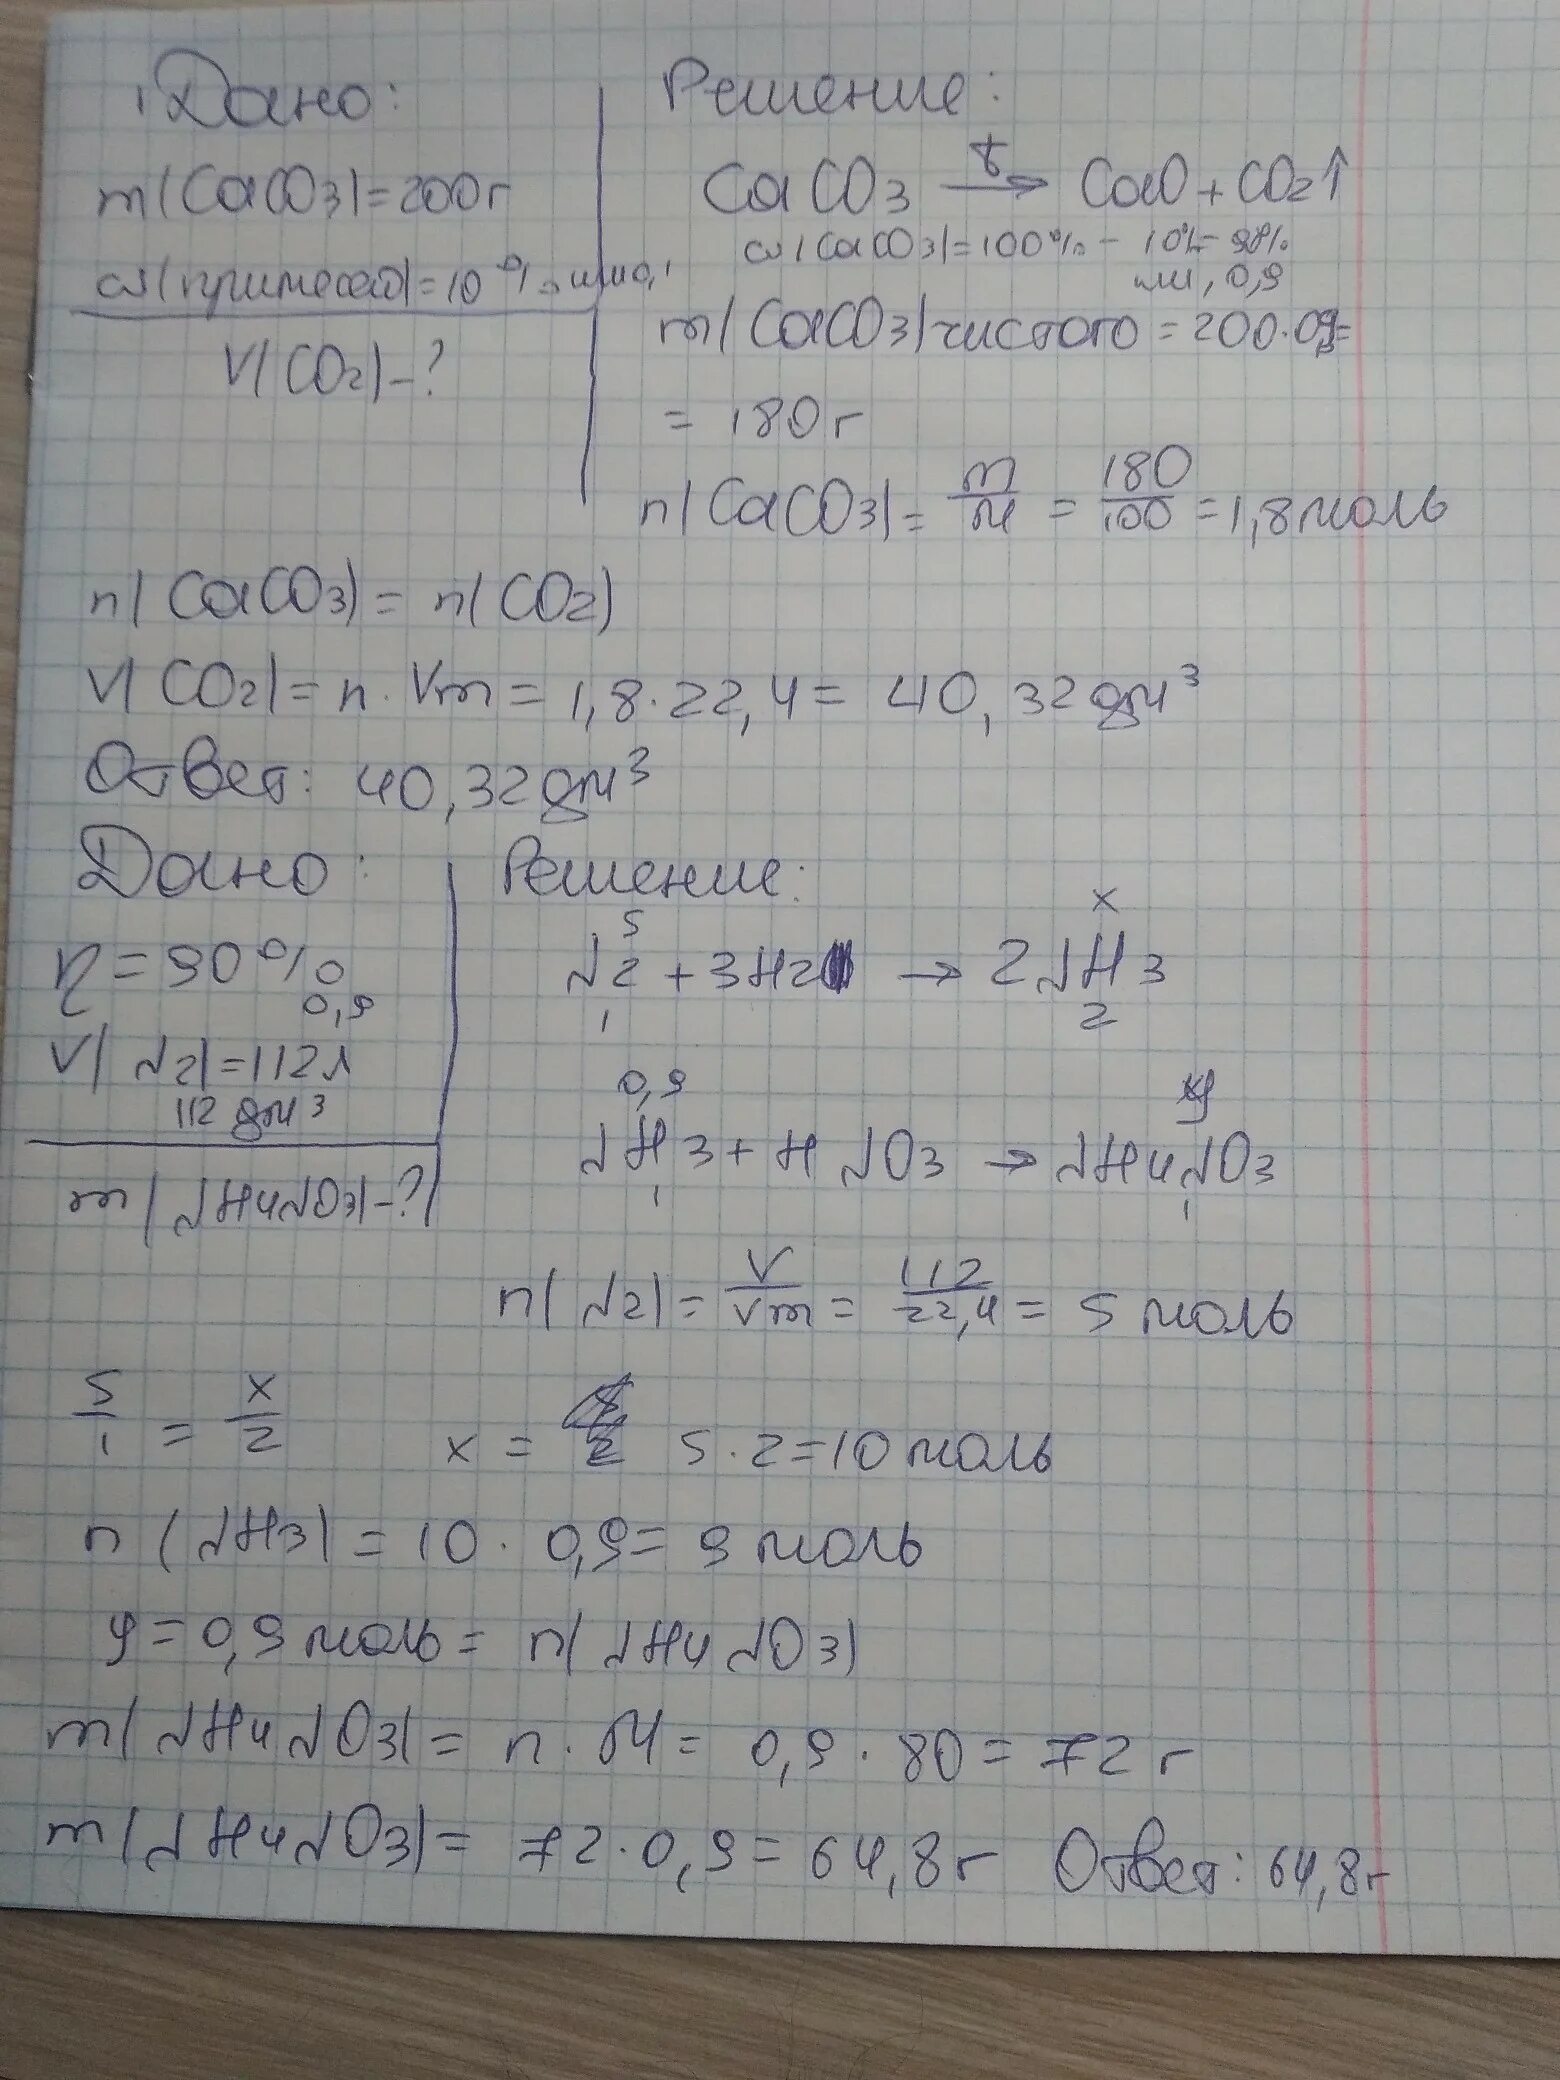 1 Дано:
m(CaCO3)=200г
ω(примесей)=10% или 0,1
V(CO2)-?
Решение:
CaCO3 t→ CaO+CO2↑
ω(CaCO3)=100%-10%=90%
или 0,9
m(CaCO3)чистого=200·0,9=
=180г
n(CaCO3)=m/M=180/100=1,8моль
n(CaCO3)=n(CO2)
V(CO2)=n·Vm=1,8·22,4=40,32дм³
Ответ: 40,32дм³
Дано:
η=90%
0,9
V(N2)=112л
112 дм³
m(NH4NO3)-?
Решение:
5 x
N2+3H2→2NH3
1 2
0,9 y
NH3+HNO3→NH4NO3
1 1
n(N2)=V/Vm=112/22,4=5 моль
5/1=x/2 x= 5·2=10моль
n(NH3)=10·0,9=9 моль
y=0,9моль=n(NH4NO3)
m(NH4NO3)=n·M=0,9·80=72г
m(NH4NO3)=72·0,9=64,8г Ответ: 64,8г